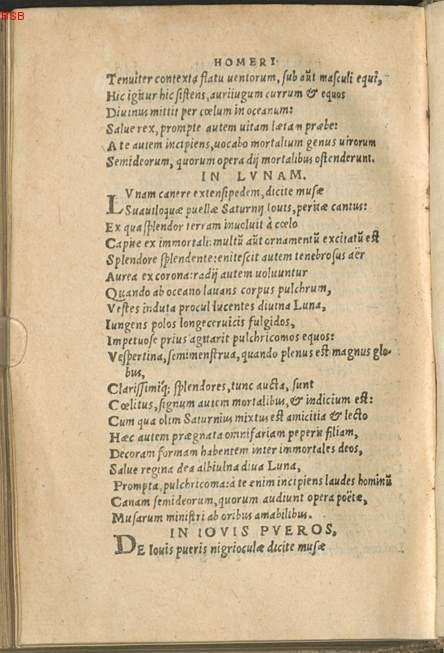 HSB
HOMERI.
Tenuiter contexta flatu uentorum, sub aũt masculi equi,
Hic igitur hic sistens, auriiugum currum & equos
Diuinus mittit per cœlum in oceanum:
Salue rex, prompte autem uitam lætam præbe:
A te autem incipiens, uocabo mortalium genus uirorum
Semideorum, quorum opera dij mortalibus ostenderunt.
IN LVNAM.
LVnam canere extensipedem, dicite musæ
Suauiloquæ puellæ Saturnij Iouis, peritæ cantus:
Ex qua splendor terram inuoluit à cœlo
Capite ex immortali: multũ aũt ornamentũ excitatũ est
Splendore splendente: enitescit autem tenebrosus aër
Aurea ex corona: radij autem uoluuntur
Quando ab oceano lauans corpus pulchrum,
Vestes induta procul lucentes diuina Luna,
Iungens polos longeceruicis fulgidos,
Impetuose prius agitarit pulchricomos equos:
Vespertina, semimenstrua, quando plenus est magnus glo-
bus,
Clarissimiq; splendores, tunc aucta, sunt
Cœlitus, signum autem mortalibus, & indicium est:
Cum qua olim Saturnius mixtus est amicitia & lecto
Hæc autem prægnata omnifariam peperit filiam,
Decoram formam habentem inter immortales deos,
Salue regina dea albiulna diua Luna,
Prompta, pulchricoma: à te enim incipiens laudes hominũ
Canam semideorum, quorum audiunt opera poëtæ,
Musarum ministri ab oribus amabilibus.
IN IOVIS PVEROS,
DE Iouis pueris nigrioculæ dicite musæ